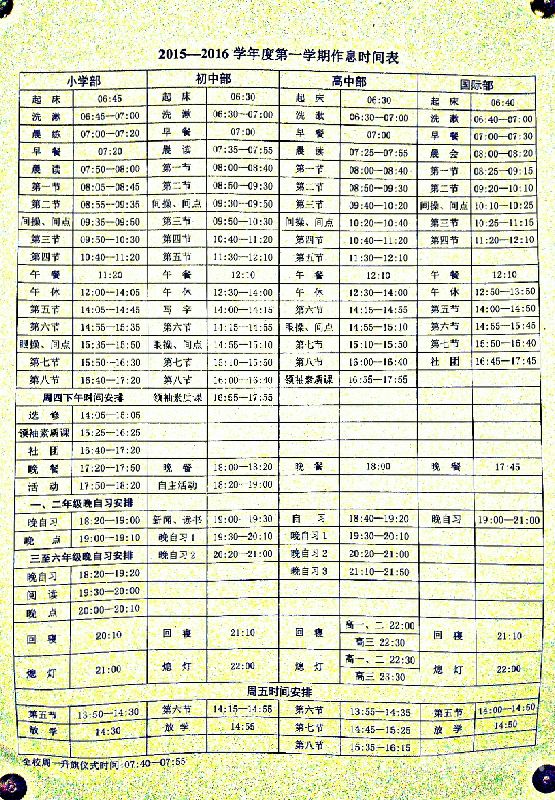 2015—2016 学年度第一学期作息时间表
小学部 初中部 高中部 国际部
起床 06:45 起床 06:30 起床 06:30 起床 06:40
洗漱 06:45—07:00 洗漱 06:30—07:00 洗漱 06:30—07:00 洗漱 06:40—07:00
晨练 07:00—07:20 早餐 07:00 早餐 07:00 早餐 07:00—07:30
早餐 07:20 晨读 07:35—07:55 晨读 07:25—07:55 晨会 08:00—08:20
晨读 07:50—08:00 第一节 08:00—08:40 第一节 08:00—08:40 第一节 08:25—09:15
第一节 08:05—08:45 第二节 08:50—09:30 第二节 08:50—09:30 第二节 09:20—10:10
第二节 08:55—09:35 间操、间点 09:30—09:50 第三节 09:40—10:20 间操、间点 10:10—10:25
间操、间点 09:35—09:50 第三节 09:50—10:30 间操、间点 10:20—10:40 第三节 10:25—11:15
第三节 09:50—10:30 第四节 10:40—11:20 第四节 10:40—11:20 第四节 11:20—12:10
第四节 10:40—11:20 第五节 11:30—12:10 第五节 11:30—12:10
午餐 11:20 午餐 12:10 午餐 12:10 午餐 12:10
午休 12:00—14:05 午休 12:30—14:00 午休 12:30—14:00 午休 12:50—13:50
第五节 14:05—14:45 写字 14:00—14:15 第六节 14:15—14:55 第五节 14:00—14:50
第六节 14:55—15:35 第六节 14:15—14:55 眼操、间点 14:55—15:10 第六节 14:55—15:45
眼操、间点 15:35—15:50 眼操、间点 14:55—15:10 第七节 15:10—15:50 第七节 15:50—16:40
第七节 15:50—16:30 第七节 15:10—15:50 第八节 16:00—16:40 社团 16:45—17:45
第八节 16:40—17:20 第八节 16:00—16:40 领袖素质课 16:55—17:55
周四下午时间安排 领袖素质课 16:55—17:55
选修 14:05—15:05
领袖素质课 15:25—16:25
社团 16:40—17:20
晚餐 17:20—17:50 晚餐 18:00—18:20 晚餐 18:00 晚餐 17:45
活动 17:50—18:20 自主活动 18:20—19:00
一、二年级晚自习安排
晚自习 18:20—19:00 新闻、读书 19:00—19:30 自习 18:40—19:20 晚自习 19:00—21:00
晚点 19:00—19:10 晚自习1 19:30—20:10 晚自习1 19:30—20:10
三至六年级晚自习安排 晚自习2 20:20—21:00 晚自习2 20:20—21:00
晚自习 18:20—19:20 晚自习3 21:10—21:50
阅读 19:30—20:00
晚点 20:00—20:10
回寝 20:10 回寝 21:10 回寝 高一、二 22:00 高三 22:30 回寝 21:10
熄灯 21:00 熄灯 22:00 熄灯 高一、二 22:30 高三 23:30 熄灯 22:00
周五时间安排
第五节 13:50—14:30 第六节 14:15—14:55 第六节 13:55—14:35 第五节 14:00—14:50
放学 14:30 放学 14:55 第七节 14:45—15:25 放学 14:50
第八节 15:35—16:15
全校周一升旗仪式时间:07:40—07:55